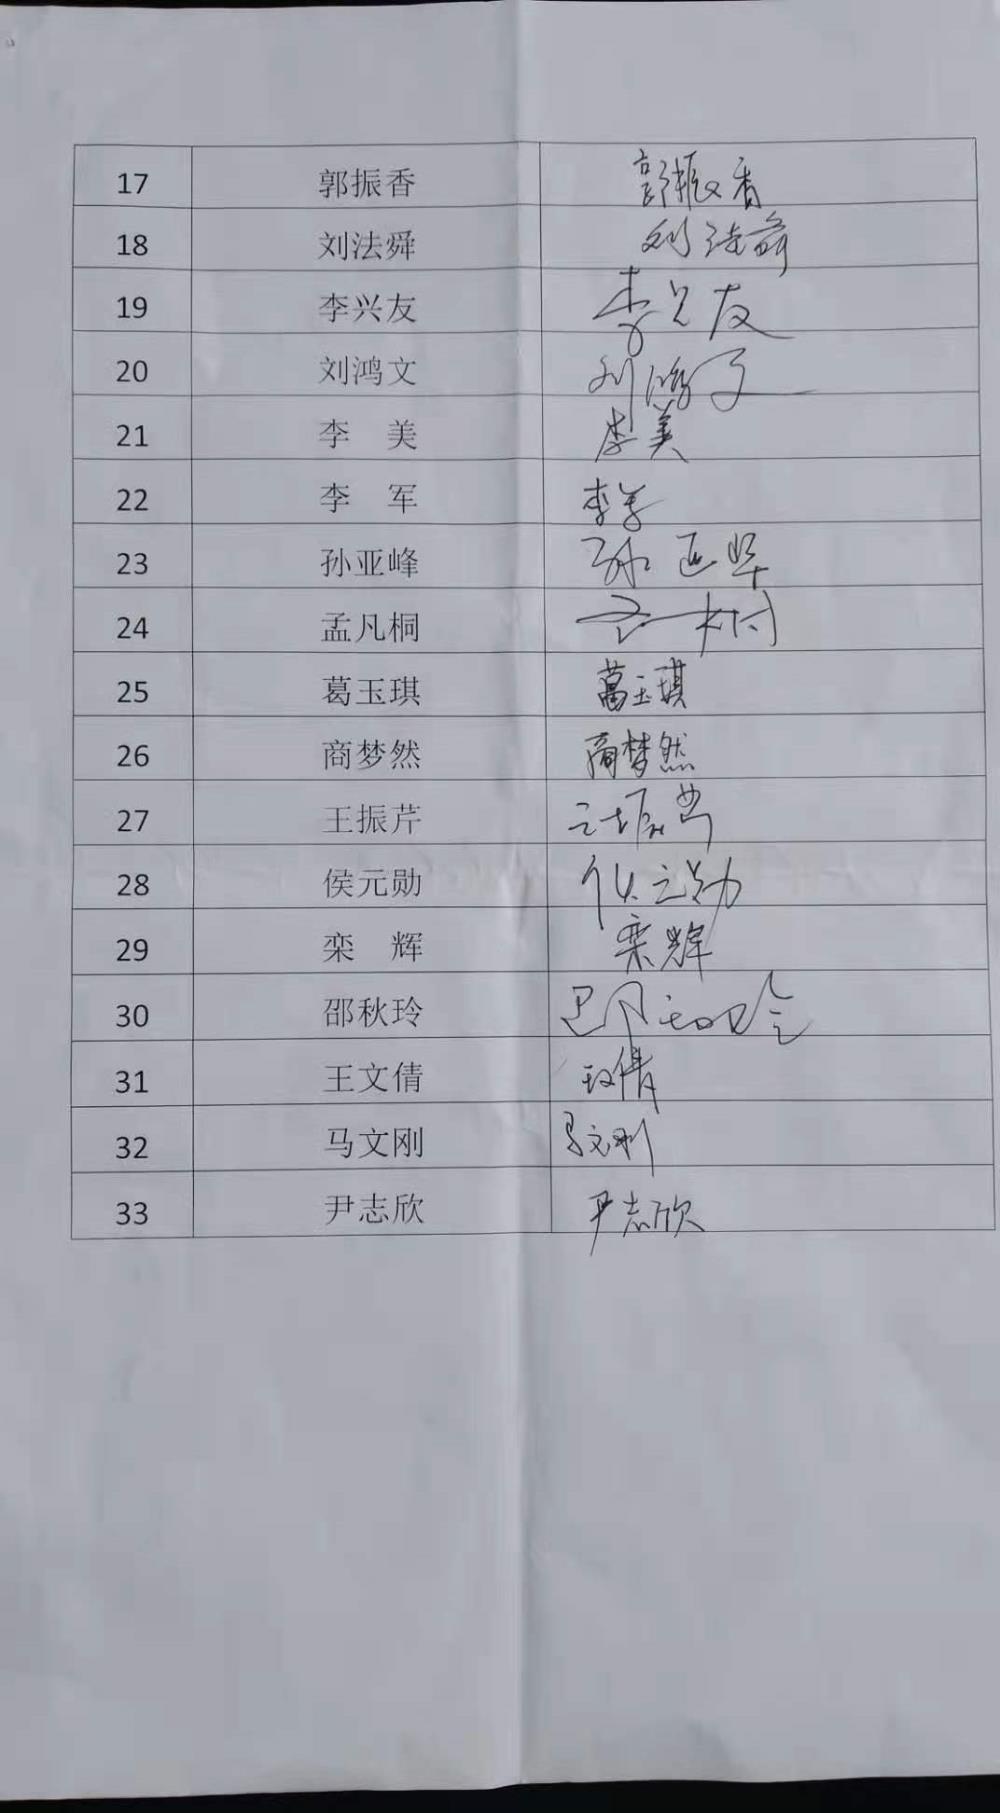 17 郭振香 郭振香
18 刘法舜 刘法舜
19 李兴友 李兴友
20 刘鸿文 刘鸿文
21 李 美 李美
22 李 军 李军
23 孙亚峰 孙亚峰
24 孟凡桐
25 葛玉琪 葛玉琪
26 商梦然 商梦然
27 王振芹 王振芹
28 侯元勋 侯元勋
29 栾 辉 栾辉
30 邵秋玲
31 王文倩 王文倩
32 马文刚 马文刚
33 尹志欣 尹志欣